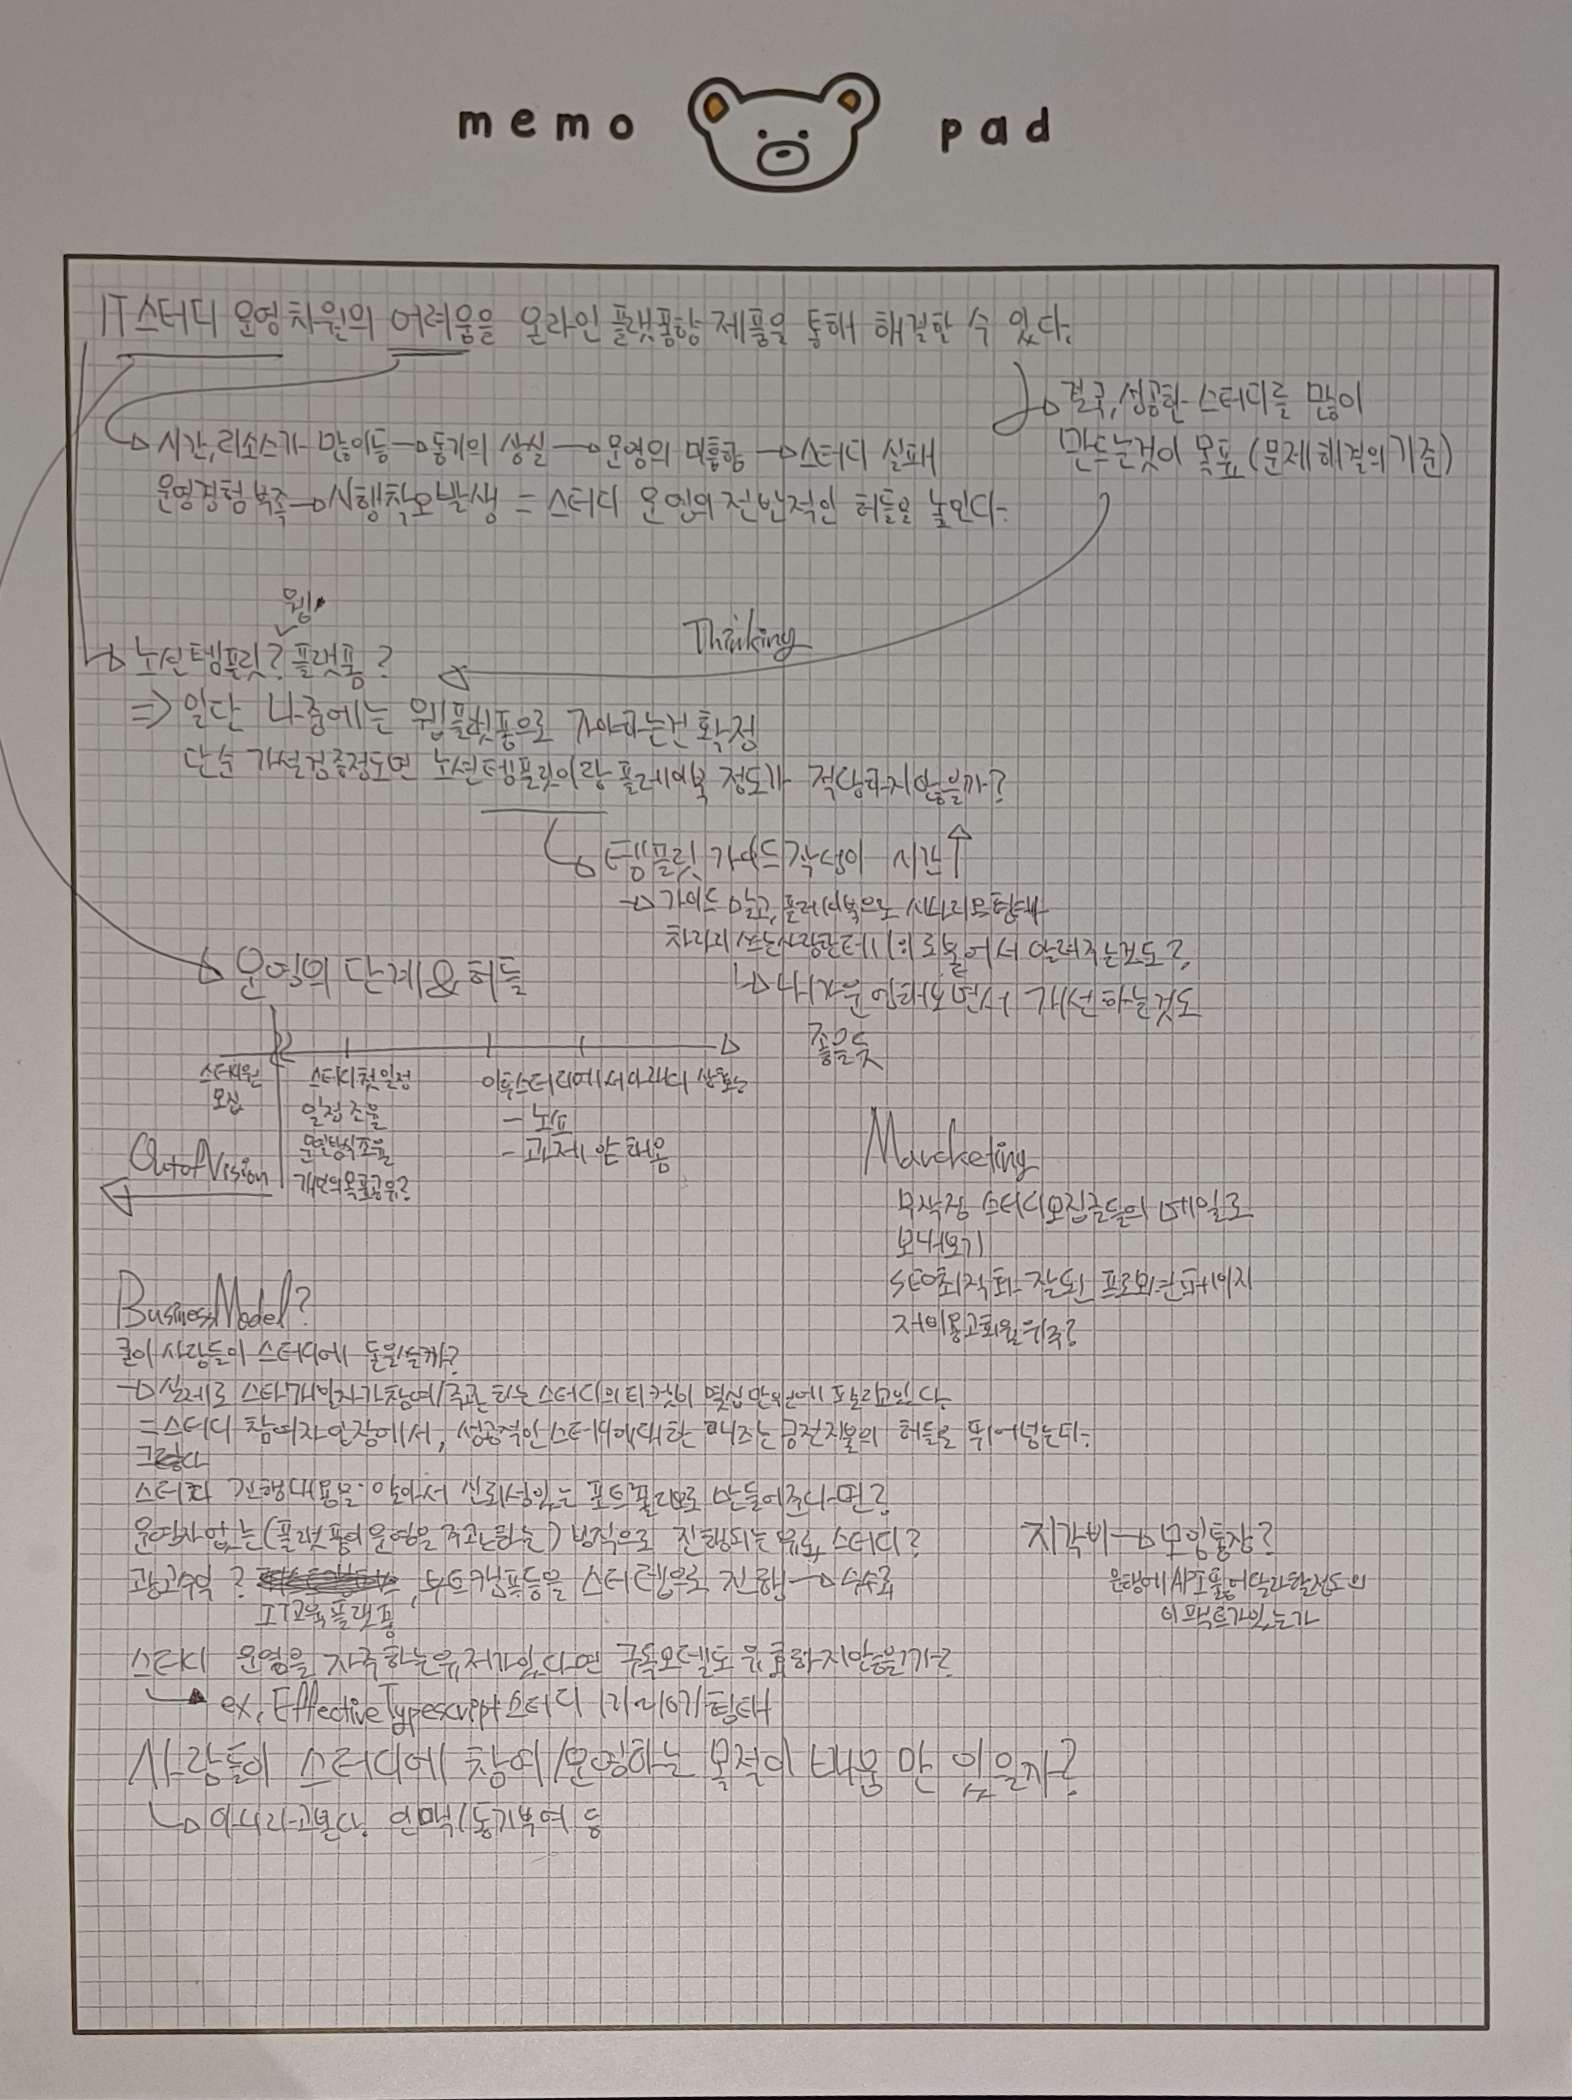 memo pad
IT스터디 운영 차원의 어려움을 온라인 플랫폼향 제품을 통해 해결할 수 있다.
결국, 성공한 스터디를 많이
만드는것이 목표 (문제해결의 기준)
시간, 리소스가 많이듦 → 동기의 상실 → 운영의 미흡함 → 스터디 실패
운영경험 부족 → 시행착오발생 = 스터디 운영의 전반적인 허들을 높인다.
웹
Thinking
노션템플릿? 플랫폼?
⇒ 일단 나중에는 웹플랫폼으로 가야하는건 확정
단순 가설검증정도면 노션템플릿이랑 플레이북 정도가 적당하지않을까?
템플릿 가이드 작성이 시간↑
→ 가이드 말고, 플레이북으로 시나리오형태
차라리 쓰는사람한테 1:1로 붙어서 알려주는것도?
내가 운영해보면서 개선하는것도
좋을듯
운영의 단계 & 허들
스터디원
모집
스터디 첫일정
일정 조율
운영방식조율
개인의 목표공유?
이후 스터디에서
- 노쇼
- 과제 안해옴
Out of Vision
Marcketing
무작정 스터디모집글들의 메일로
보내보기
SEO최적화 잘된 프로모션페이지
재이용고회원위주?
BusinessModel?
굳이 사람들이 스터디에 돈을쓸까?
→ 실제로 스타개발자가 참여/주관하는 스터디의 티켓이 몇십만원에 팔리고있다.
= 스터디 참여자 입장에서, 성공적인스터디에대한 니즈는 금전지불의 허들을 뛰어넘는다.
그렇다
스터디 진행내용을 알아서 신뢰성있는 포트폴리오로 만들어준다면?
운영자 없는(플랫폼이 운영을 주관하는) 방식으로 진행되는 유료 스터디?
지각비 → 모임통장?
광고수익? , 부트캠프등을 스터디템으로 진행 → 수수료
IT교육플랫폼
은행에 API로 뚫어달라할정도의
이펙트가있는가
스터디 운영을 자주하는유저가있다면 구독모델도 유효하지않을까?
ex, EffectiveTypescript 스터디 1기~10기 형태
사람들이 스터디에 참여/운영하는 목적이 배움만 있을까?
아니라고본다. 인맥/동기부여 등